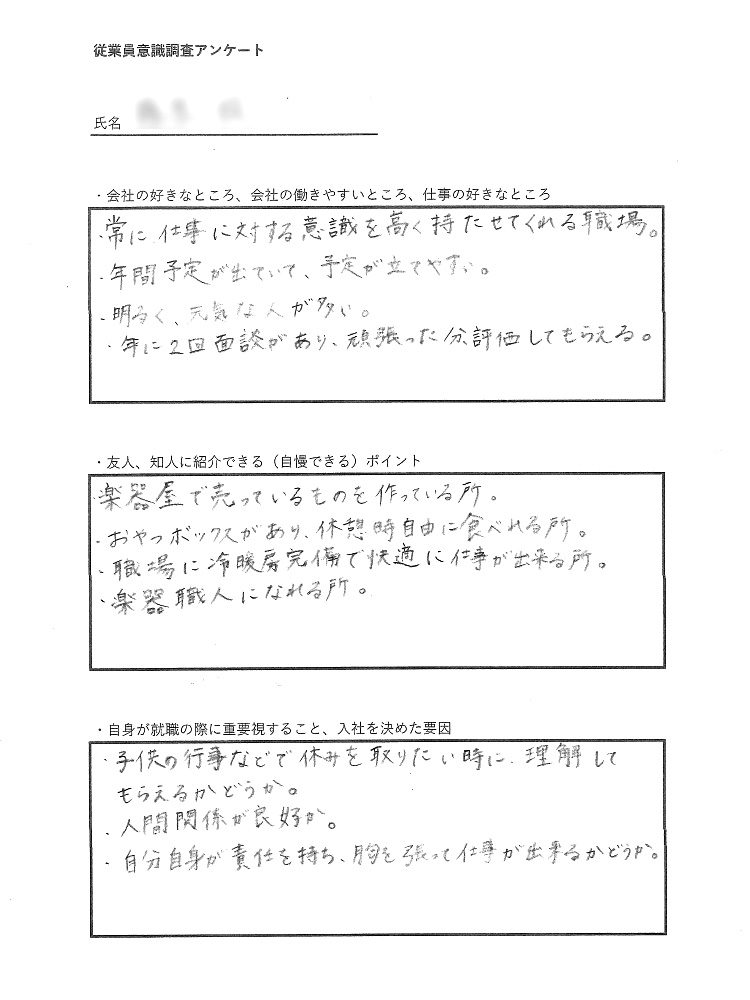 従業員意識調査アンケート
氏名
・会社の好きなところ、会社の働きやすいところ、仕事の好きなところ
・常に仕事に対する意識を高く持たせてくれる職場。
・年間予定が出ていて、予定が立てやすい。
・明るく、元気な人が多い。
・年に2回面談があり、頑張った分評価してもらえる。
・友人、知人に紹介できる（自慢できる）ポイント
・楽器屋で売っているものを作っている所。
・おやつボックスがあり、休憩時自由に食べれる所。
・職場に冷暖房完備で快適に仕事が出来る所。
・楽器職人になれる所。
・自身が就職の際に重要視すること、入社を決めた要因
・子供の行事などで休みを取りたい時に、理解して
もらえるかどうか。
・人間関係が良好か。
・自分自身が責任を持ち、胸を張って仕事が出来るかどうか。